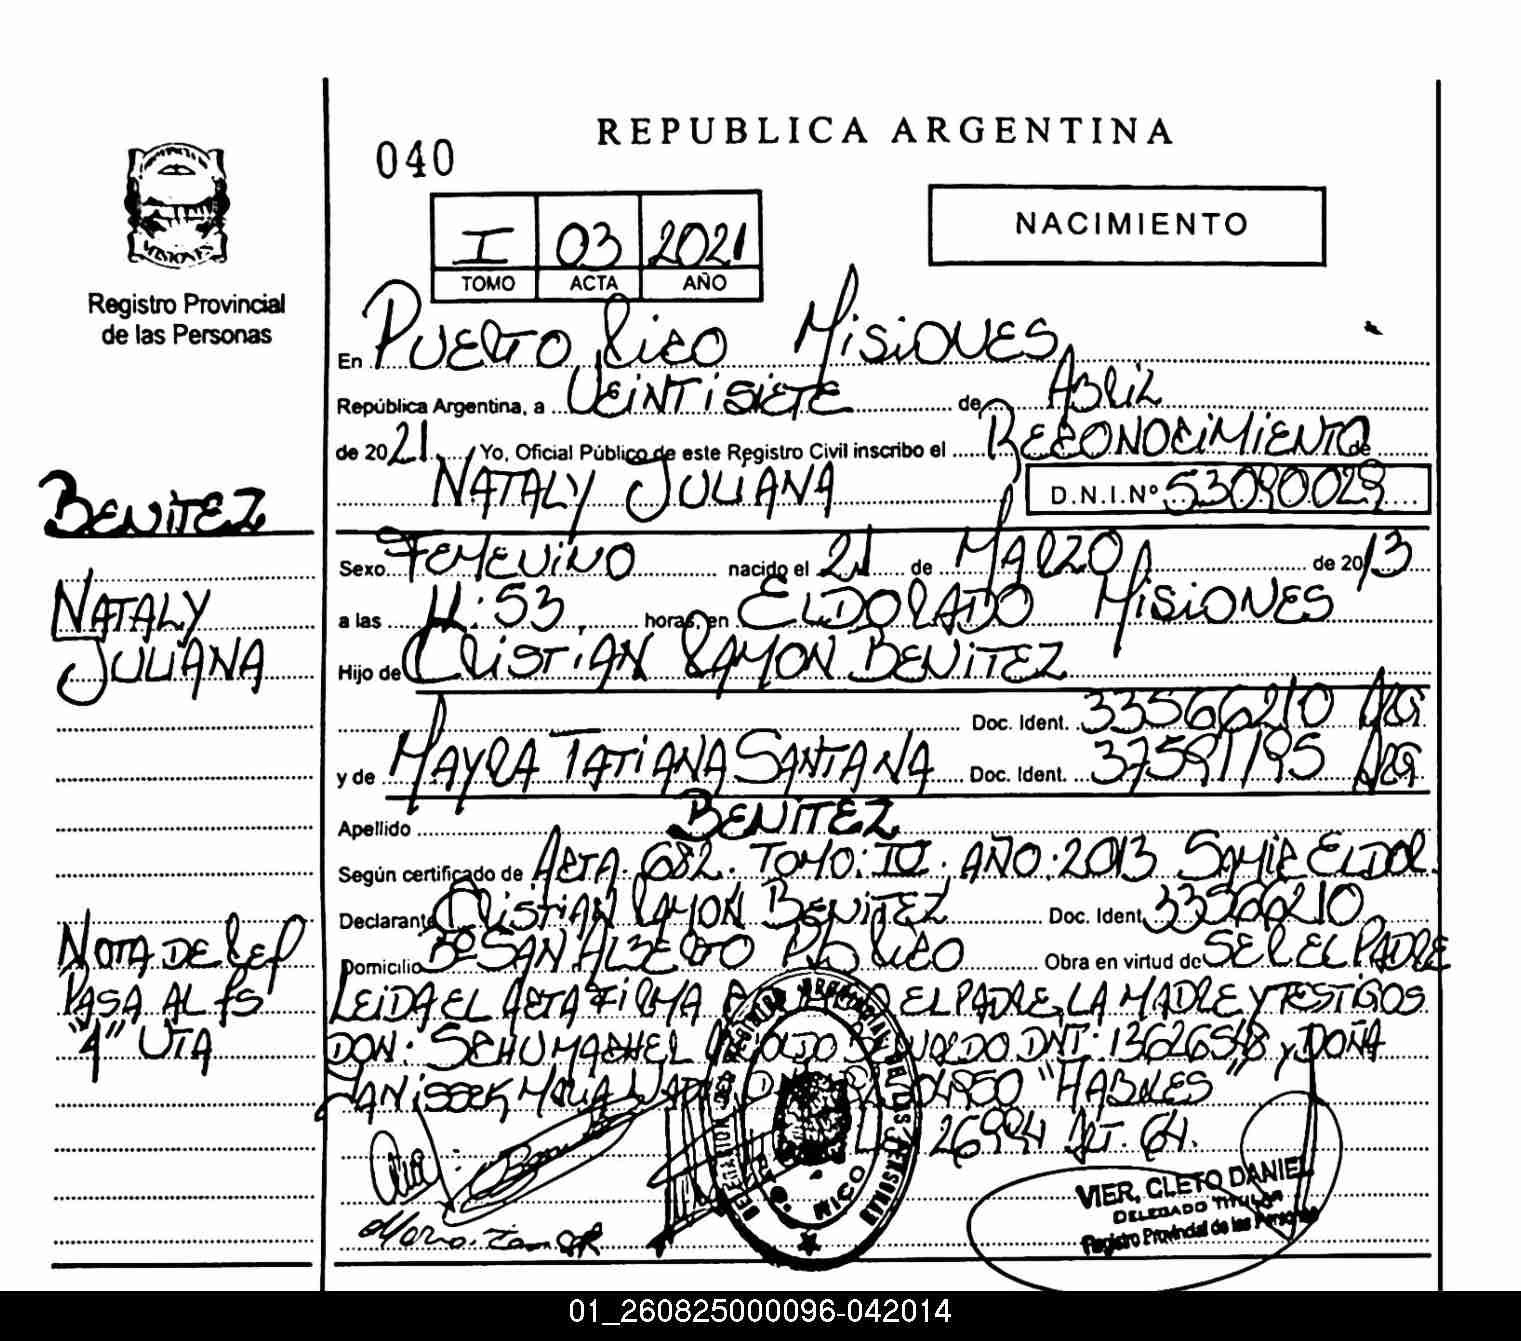 REPUBLICA ARGENTINA
040
NACIMIENTO
I 03 2021
TOMO ACTA AÑO
MISIONES
Registro Provincial
de las Personas
En PUERTO RICO MISIONES
República Argentina, a VEINTISIETE de ABRIL
de 2021 Yo, Oficial Público de este Registro Civil inscribo el RECONOCIMIENTO de
NATALY JULIANA D.N.I.Nº 53090029
BENITEZ
Sexo FEMENINO nacido el 21 de MARZO de 2013
NATALY
a las 11:53 horas, en ELDORADO MISIONES
JULIANA
Hijo de CRISTIAN RAMON BENITEZ
Doc. Ident. 33566210 ARG
y de MAYRA TATIANA SANTANA Doc. Ident. 37591195 ARG
Apellido BENITEZ
Según certificado de ACTA. 682. TOMO: III. AÑO. 2013 ELDOR.
Declarante CRISTIAN RAMON BENITEZ Doc. Ident. 33566210
NOTA DE REF
Domicilio Bº SAN ALBERTO Pto RICO Obra en virtud de SER EL PADRE
PASA AL FS
LEIDA EL ACTA FIRMA EL PADRE, LA MADRE Y TESTIGOS
"4" VTA
DON. DNI. 13626548 y DOÑA
MARIA "HABILES"
26994 ART. 64.
DELEGACION DEL REGISTRO PROVINCIAL DE LAS PERSONAS
RICO
VIER, CLETO DANIEL
DELEGADO TITULAR
Registro Provincial de las Personas
01_260825000096-042014